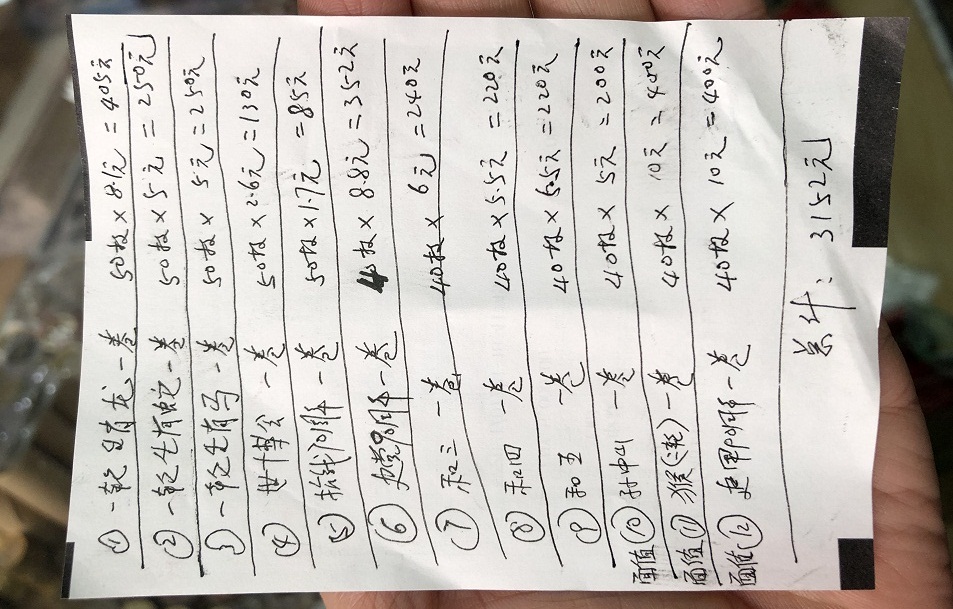 ① 一轮生肖龙一卷 50枚×8.1元=405元
② 一轮生肖蛇一卷 50枚×5元=250元
③ 一轮生肖马一卷 50枚×5元=250元
④ 世博会 一卷 50枚×2.6元=130元
⑤ 抗战70周年一卷 50枚×1.7元=85元
⑥ 建党90周年一卷 40枚×8.8元=352元
⑦ 和三 一卷 40枚×6元=240元
⑧ 和四 一卷 40枚×5.5元=220元
⑨ 和五 一卷 40枚×5.5元=220元
面值⑩孙中山 一卷 40枚×5元=200元
面值⑪猴(二轮)一卷 40枚×10元=400元
面值⑫建军周年一卷 40枚×10元=400元
累计:3152元